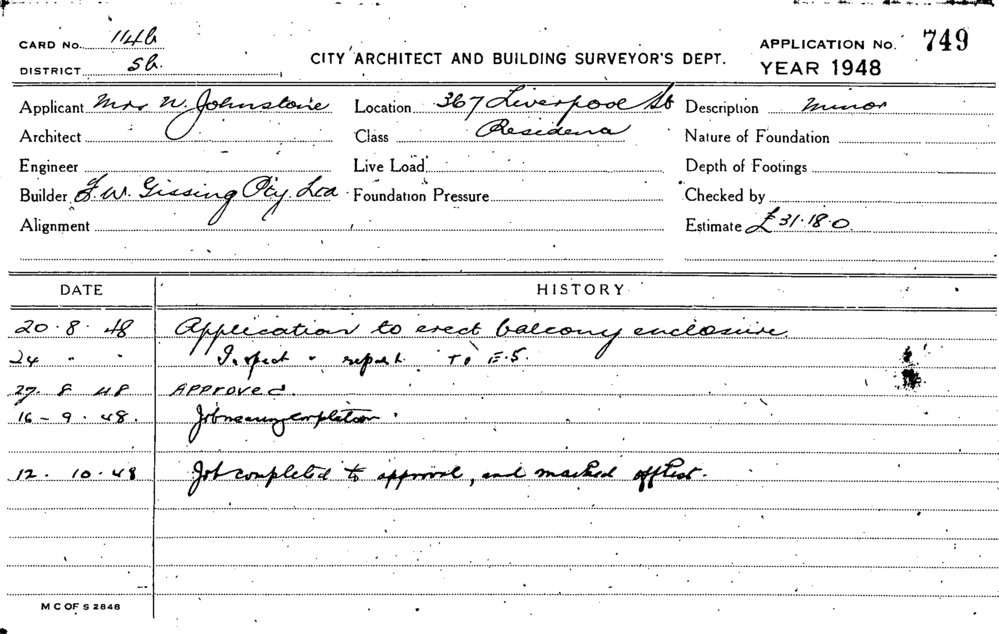 CARD No. 114b
DISTRICT 5b.
CITY ARCHITECT AND BUILDING SURVEYOR'S DEPT.
APPLICATION No. 749
YEAR 1948
Applicant Mrs N. Johnstone Location 367 Liverpool St Description Minor
Architect Class Residence Nature of Foundation
Engineer Live Load Depth of Footings
Builder F. W. Gissing Pty. Ltd Foundation Pressure Checked by
Alignment Estimate £31.18.0
DATE HISTORY
20.8.48 Application to erect balcony enclosure.
24 " " Inspect & report To E.S.
27.8 48 APPROVED.
16-9.48. Job nearing completion.
12. 10.48 Job completed to approval, and marked off list.
M C OF S 2848